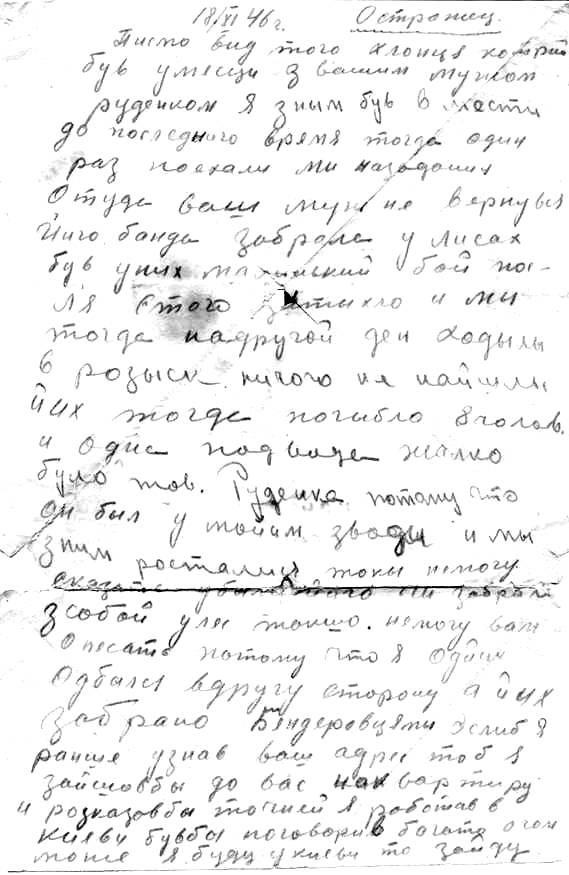 18/XI 46 г. Остражец.
Писмо вид того хлопця котрий
був умести з вашим мужом
руденком я зным був в мести
до последнього время тогда один
раз поехали ми назадания
Отуда ваш муж не вернувся
Його банда забрала у лисах
був уних маленький бой по-
ля етого затихло и ми
тогда надругой ден ходылы
в розыск ничого не найшлы
йих тогда погибло 8 голов.
и одна подвода жалко
було тов. Руденка потому что
он был у мойим зводи и мы
зним росталися токы немогу
сказате убили його чи забрали
зсобой улес токшо. немогу вам
Описать потому что я один
Одбался вдругу сторону а йих
забрано Бендеровцямы Эслиб я
ранше узнав ваш адрес тоб я
зайшовбы до вас наквартиру
и розказовбы точней я работав в
Києви бувбы поговорив богато о том
може я буду укиеви то зайду